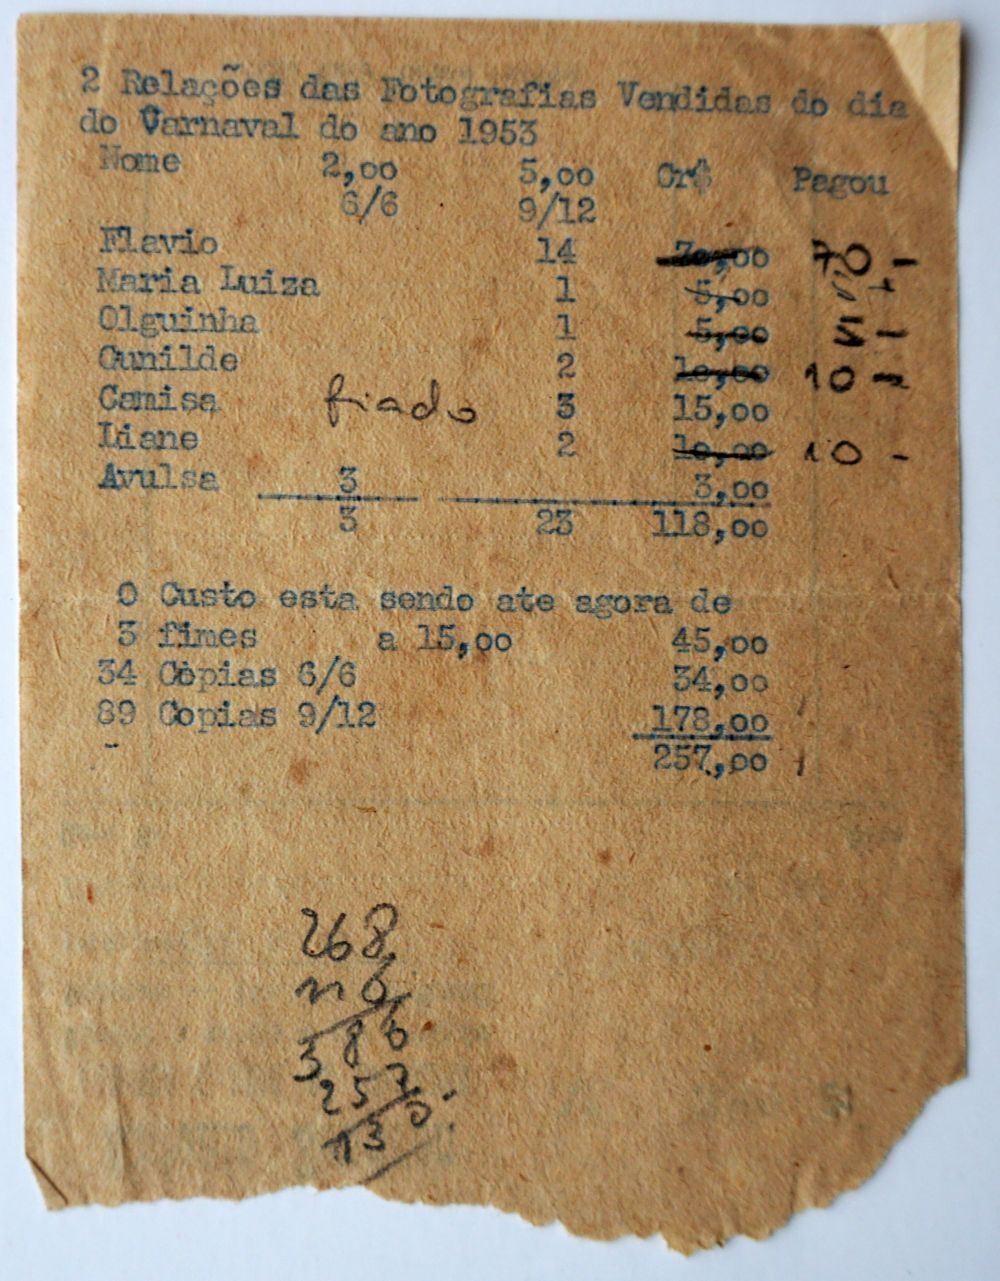 2 Relações das Fotografias Vendidas do dia
do Carnaval do ano 1953
Nome 2,oo 5,oo Cr$ Pagou
6/6 9/12
Flavio 14 7o,oo 70 -
Maria Luiza 1 5,oo
Olguinha 1 5,oo
Cunilde 2 1o,oo 10 -
Camisa fiado 3 15,oo
Liane 2 1o,oo 10 -
Avulsa 3 3,oo
3 23 118,oo
O Custo esta sendo ate agora de
3 fimes a 15,oo 45,oo
34 Còpias 6/6 34,oo
89 Copias 9/12 178,oo
257,oo
268,
386
257
130